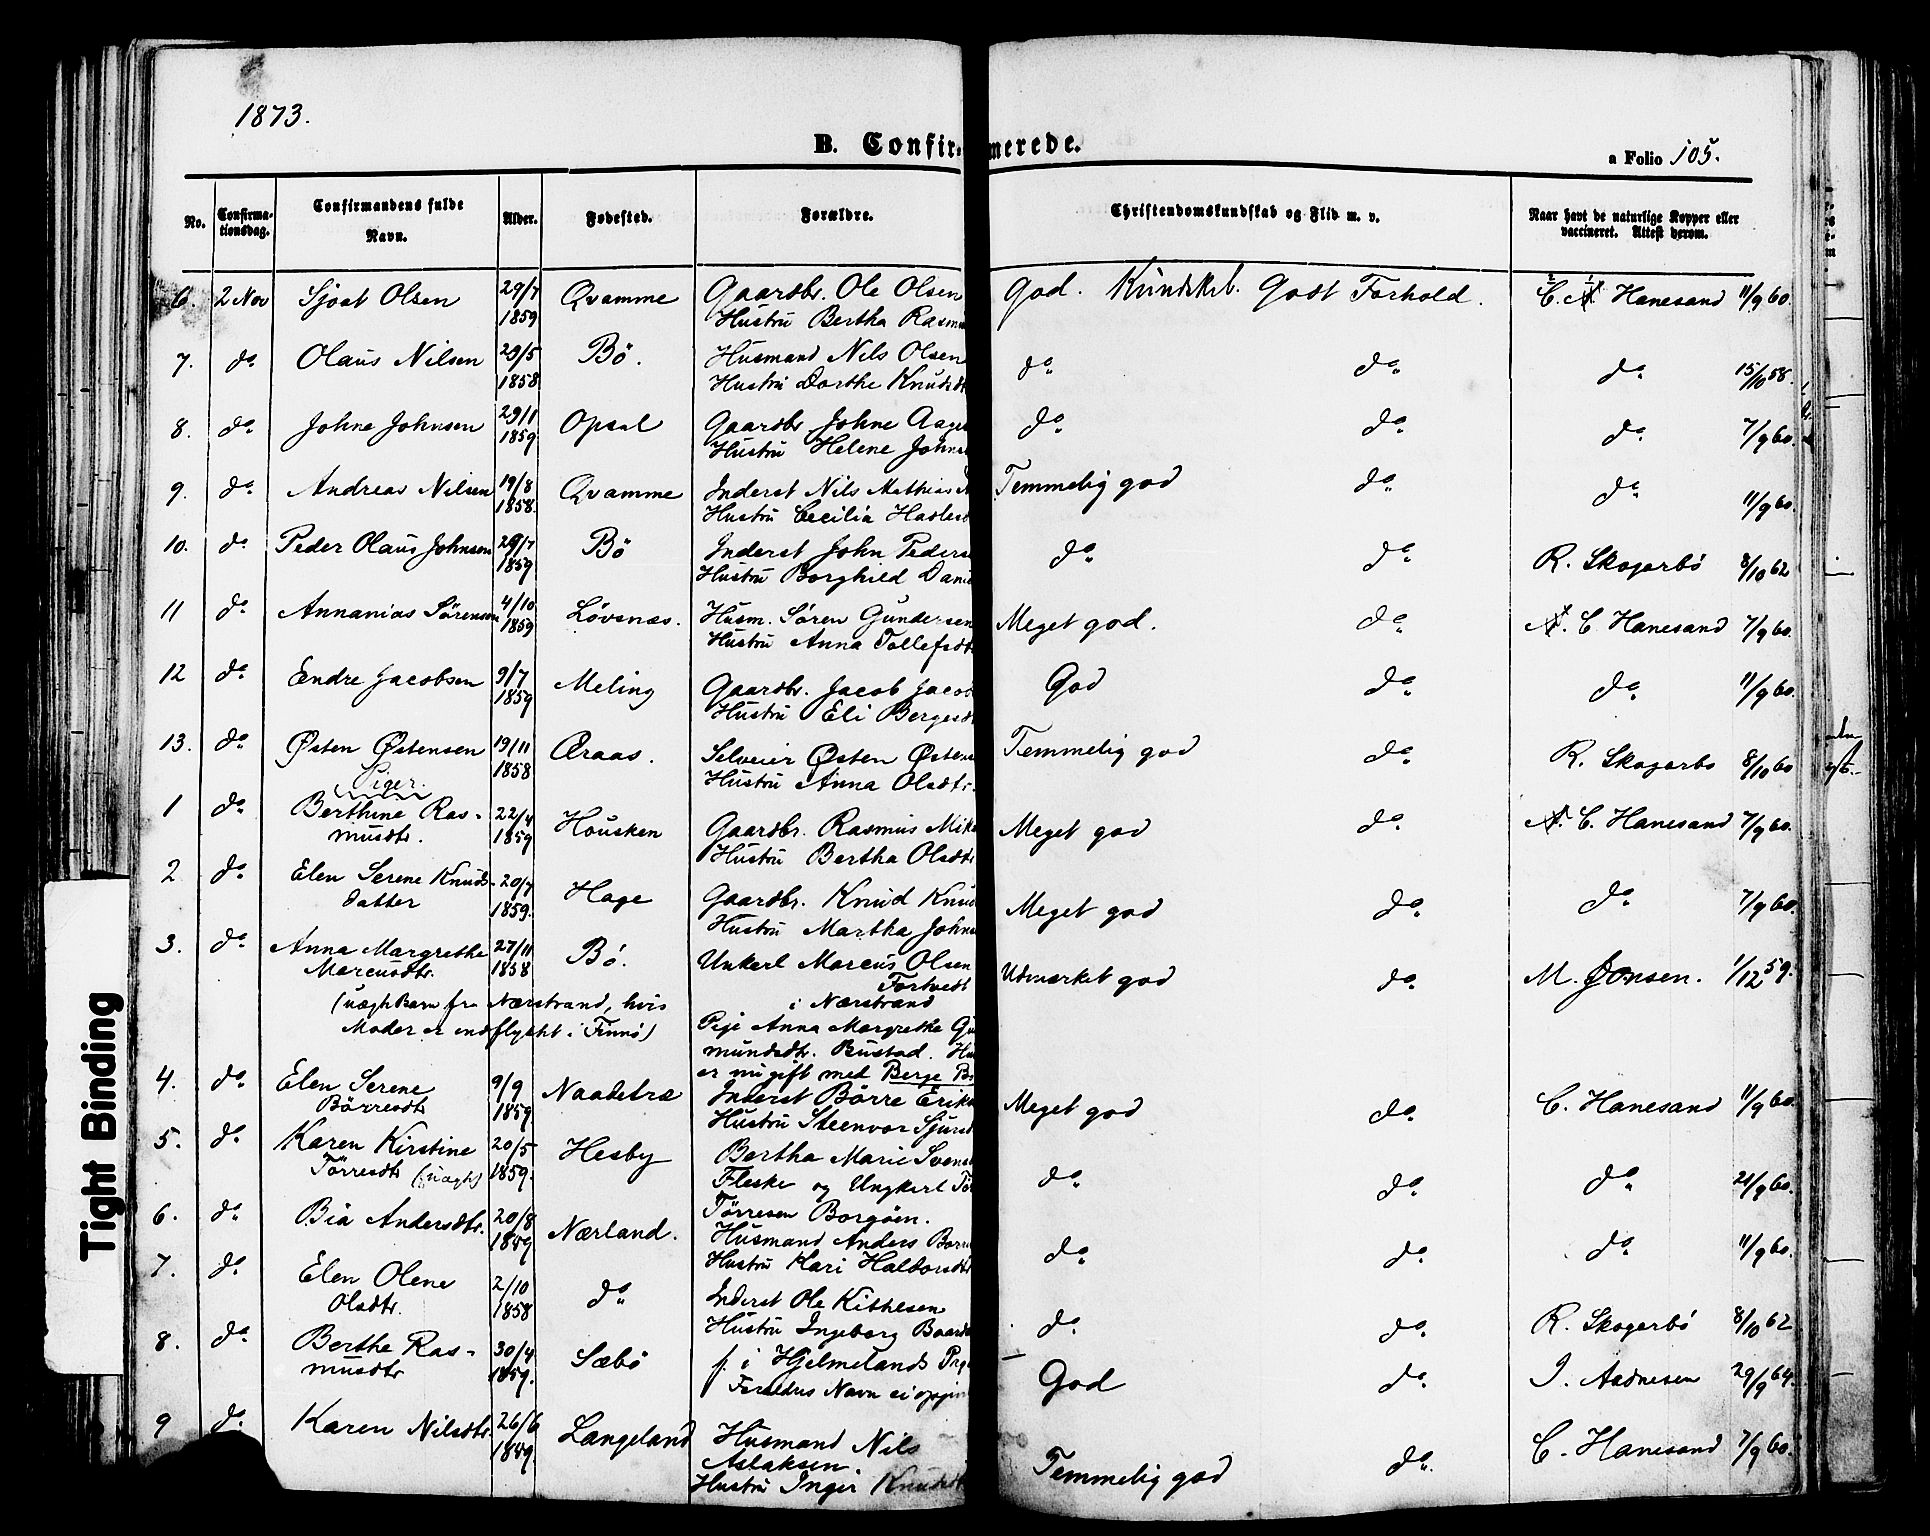 1873.
B. Confirmerede.
a Folio 105.
No. Confirmationsdag. Confirmandens fulde Navn. Alder. Fødested. Forældre. Christendomskundskab og Flid m. v. Naar havt de naturlige Kopper eller vaccineret. Attest derom.
6 2 Nov Sjoat Olsen 29/7 1859 Qvamme Gaardbr. Ole Olsen God. Kundskb. Godt Forhold. C. N Hanesand 11/9 60.
Hustru Bertha Rasm
7. do Olaus Nilsen 29/5 1858 Bö. Husmand Nils Olsen do do do 15/10 58.
Hustru Dorthe Knudsdt
8. do Johne Johnsen 29/11 1859 Opsal Gaardbr. Johne Aage do do do 7/9 60.
Hustru Helene Johns
9. do Andreas Nilsen 19/8 1858. Qvamme Inderst Nils Mathias Temmelig god do do 11/9 60.
Hustru Cecilia
10. do Peder Olaus Johnsen 29/7 1859 Bö Inderst John Peders do do R. Skogerbö 8/10 62
Hustru Borghild Dani
11 do Annanias Sörensen 4/10 1859 Lövsnæs. Husm. Sören Gundersen Meget god. do N. C. Hanesand 7/9 60.
Hustru Anna Tollefsdt
12 do Endre Jacobsen 9/7 1859 Meling Gaardbr. Jacob Jacob God do do 11/9 60.
Hustru Eli Bergesdt
13. do Østen Østensen 19/11 1858 Aaraas. Selveier Østen Østens Temmelig god do R. Skogerbo 8/10 60
Hustru Anna Olsdtr.
Piger.
1 do Berthine Ras- 22/4 1859 Housken Gaardbr. Rasmus Mik Meget god do N. C. Hanesand 7/9 60.
musdtr. Hustru Bertha Olsdtr
2 do Elen Serene Knuds- 20/7 1859. Hage Gaardbr. Knud Knud Meget god do do 7/9 60.
datter Hustru Martha Johns
3. do Anna Margrethe 27/11 1858 Bö. Unkerl Marcus Olsen Udmærket god do M. Jonsen. 1/12 59.
Marcusdtr. Tortvedt
(uægte Barn fra Nærstrand, hvis i Nærstrand
Moder er indflyttet i Finnö) Pige Anna Margrethe Gu
mundsdtr. Bustad. Hu
er nu gift med Berge B
4. do Elen Serene 9/9 1859 Naadetræ Inderst Börre Eriks Meget god do C. Hanesand 11/9 60.
Börresdtr Hustru Steenvor Sjursd
5. do Karen Kirstine 20/5 1859. Hesby Bertha Marie Svens do do do 21/9 60.
Törresdtr (uægte) Fleske og Ungkerl Tör
Törresen Borgöen.
6. do Bia Andersdtr. 20/8 1859 Nærland. Husmand Anders do do do 11/9 60.
Hustru Kari Haldorsdtr
7. do Elen Olene 2/10 1858 do Inderst Ole Kittelsen do do R. Skogerbö 8/10 62
Olsdtr. Hustru Ingeborg Baard
8. do Berthe Ras- 30/4 1859. Sæbö f. i Hjelmelands Prg God do I. Aadnesen 29/9 64.
musdtr Foreldres Navn ei
9 do. Karen Nilsdtr 26/6 1859. Langeland Husmand Nils Temmelig god do. C. Hanesand 7/9 60.
Aslaksen.
Hustru Inger Knudsdt
Tight Binding